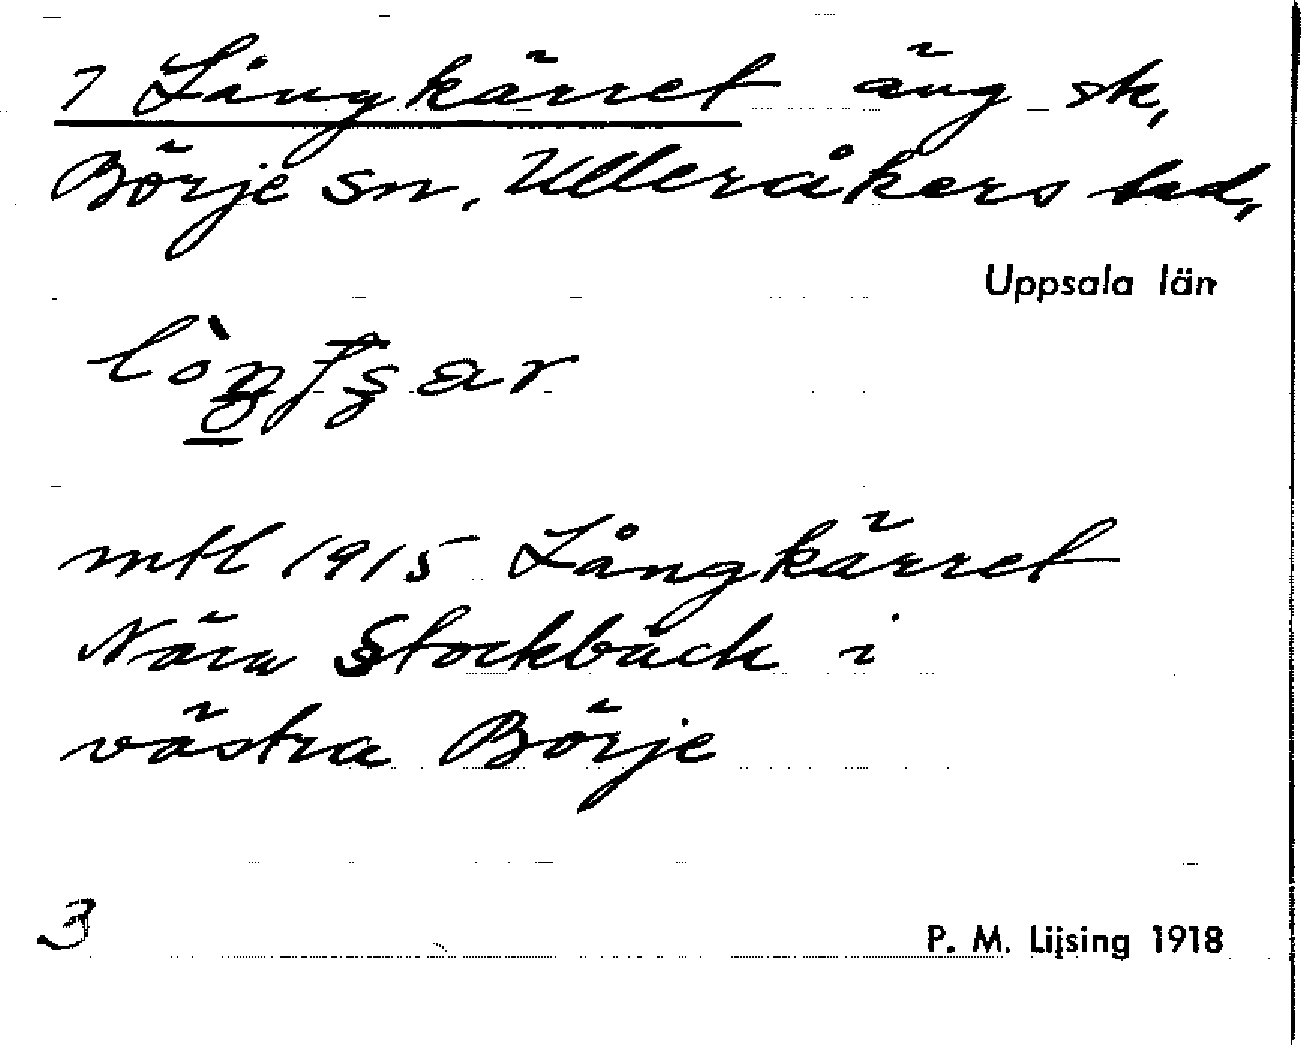 ? Långkärret äng sk,
Börje sn. Ulleråkers hd,
Uppsala län
mtl 1915 Långkärret
Nära Stockbäck i
västra Börje
3
P. M. Lijsing 1918